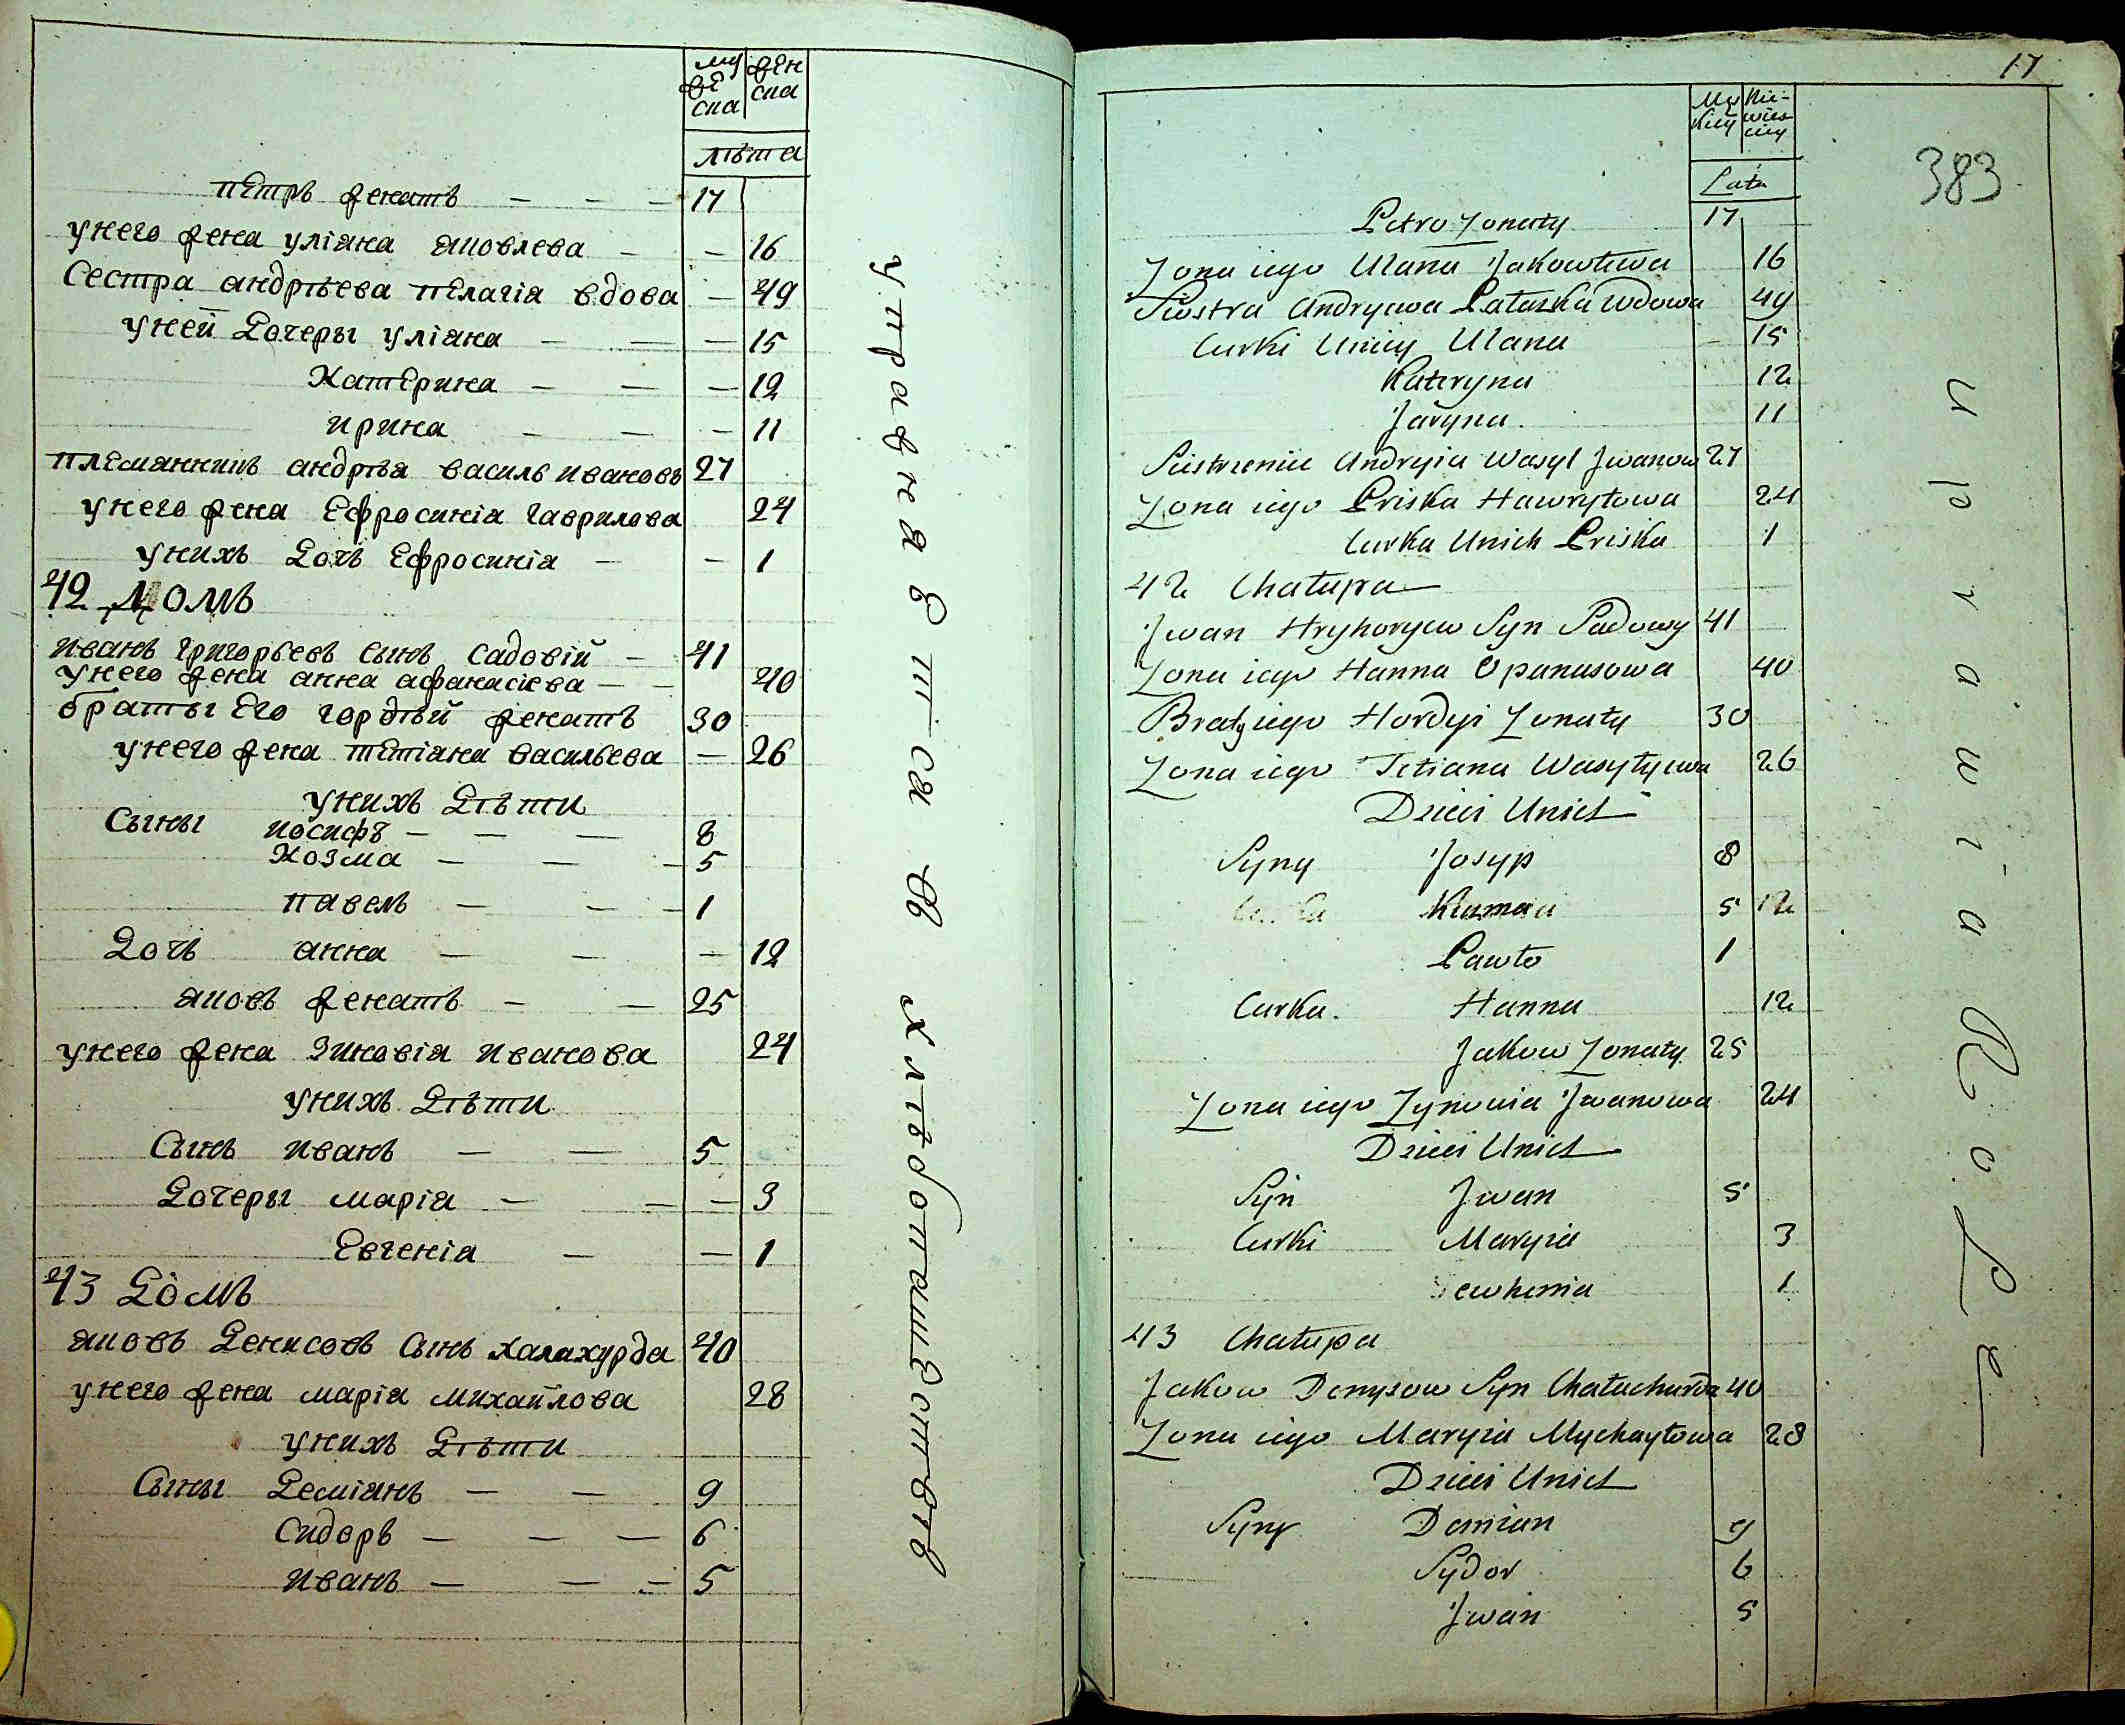 му
же
ска
жен
ска
лѣта
пѣтръ женатъ — — — 17
у него жена уліана яковлева — — 16
Сестра андрѣева пелагія вдова — 49
у ней Дочеры уліана — — — 15
Катерина — — — 12
ирина — — — 11
племянникъ андрѣя василь ивановъ 27
у него жена Ефросинія гаврилова 24
у нихъ Дочь Ефросинія — — 1
42 Домъ
иванъ григорьевъ Сынъ Садовій — 41
у него жена анна афанасіева — — 40
братьі Его гордѣй женатъ 30
у него жена тетіана васильева — 26
у нихъ Дѣти
Сыны иосифъ — — — 8
Козма — — — 5
павелъ — — — 1
Дочь анна — — — 12
яковъ женатъ — — 25
у него жена Зиновія иванова 24
у нихъ Дѣти
Сынъ иванъ — — 5
Дочеры марія — — — 3
Евгенія — — 1
43 Домъ
яковъ Денисовъ Сынъ Халахурда 40
у него жена марія михайлова 28
у нихъ Дѣти
Сыны Деміянъ — — 9
Сидоръ — — — 6
иванъ — — — 5
упражняется въ хлѣбопашествѣ
17
383
Męż
kiey
Nie-
wies
ciey
Lata
Petro Zonaty 17
Zona iego Ulana Jakowliwa 16
Siostra Andryiwa Palazka Wdowa 49
Curki Uniey Ulana 15
Kateryna 12
Jaryna 11
Siestrzeniec Andryia Wasyl Jwanow 27
Zona iego Priska Hawryłowa 24
Curka Unich Priska 1
42 Chałupa
Jwan Hryhoryew Syn Sadowy 41
Zona iego Hanna Opanasowa 40
Braty iego Hordyi Zonaty 30
Zona iego Tetiana Wasylyiwa 26
Dzieci Unich
Syny Josyp 8
Kuzma 5 12
Pawło 1
Curka Hanna 12
Jakow Zonaty 25
Zona iego Zynowia Jwanowa 24
Dzieci Unich
Syn Jwan 5
Curki Maryia 3
Jewhenia 1
43 Chałupa
Jakow Denysow Syn Chałachurda 40
Zona iego Maryia Mychayłowa 28
Dzieci Unich
Syny Demian 9
Sydor 6
Jwan 5
uprawia Role